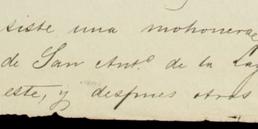 siste una mohonera
de San Ant.º de la Lag
este, y despues otros